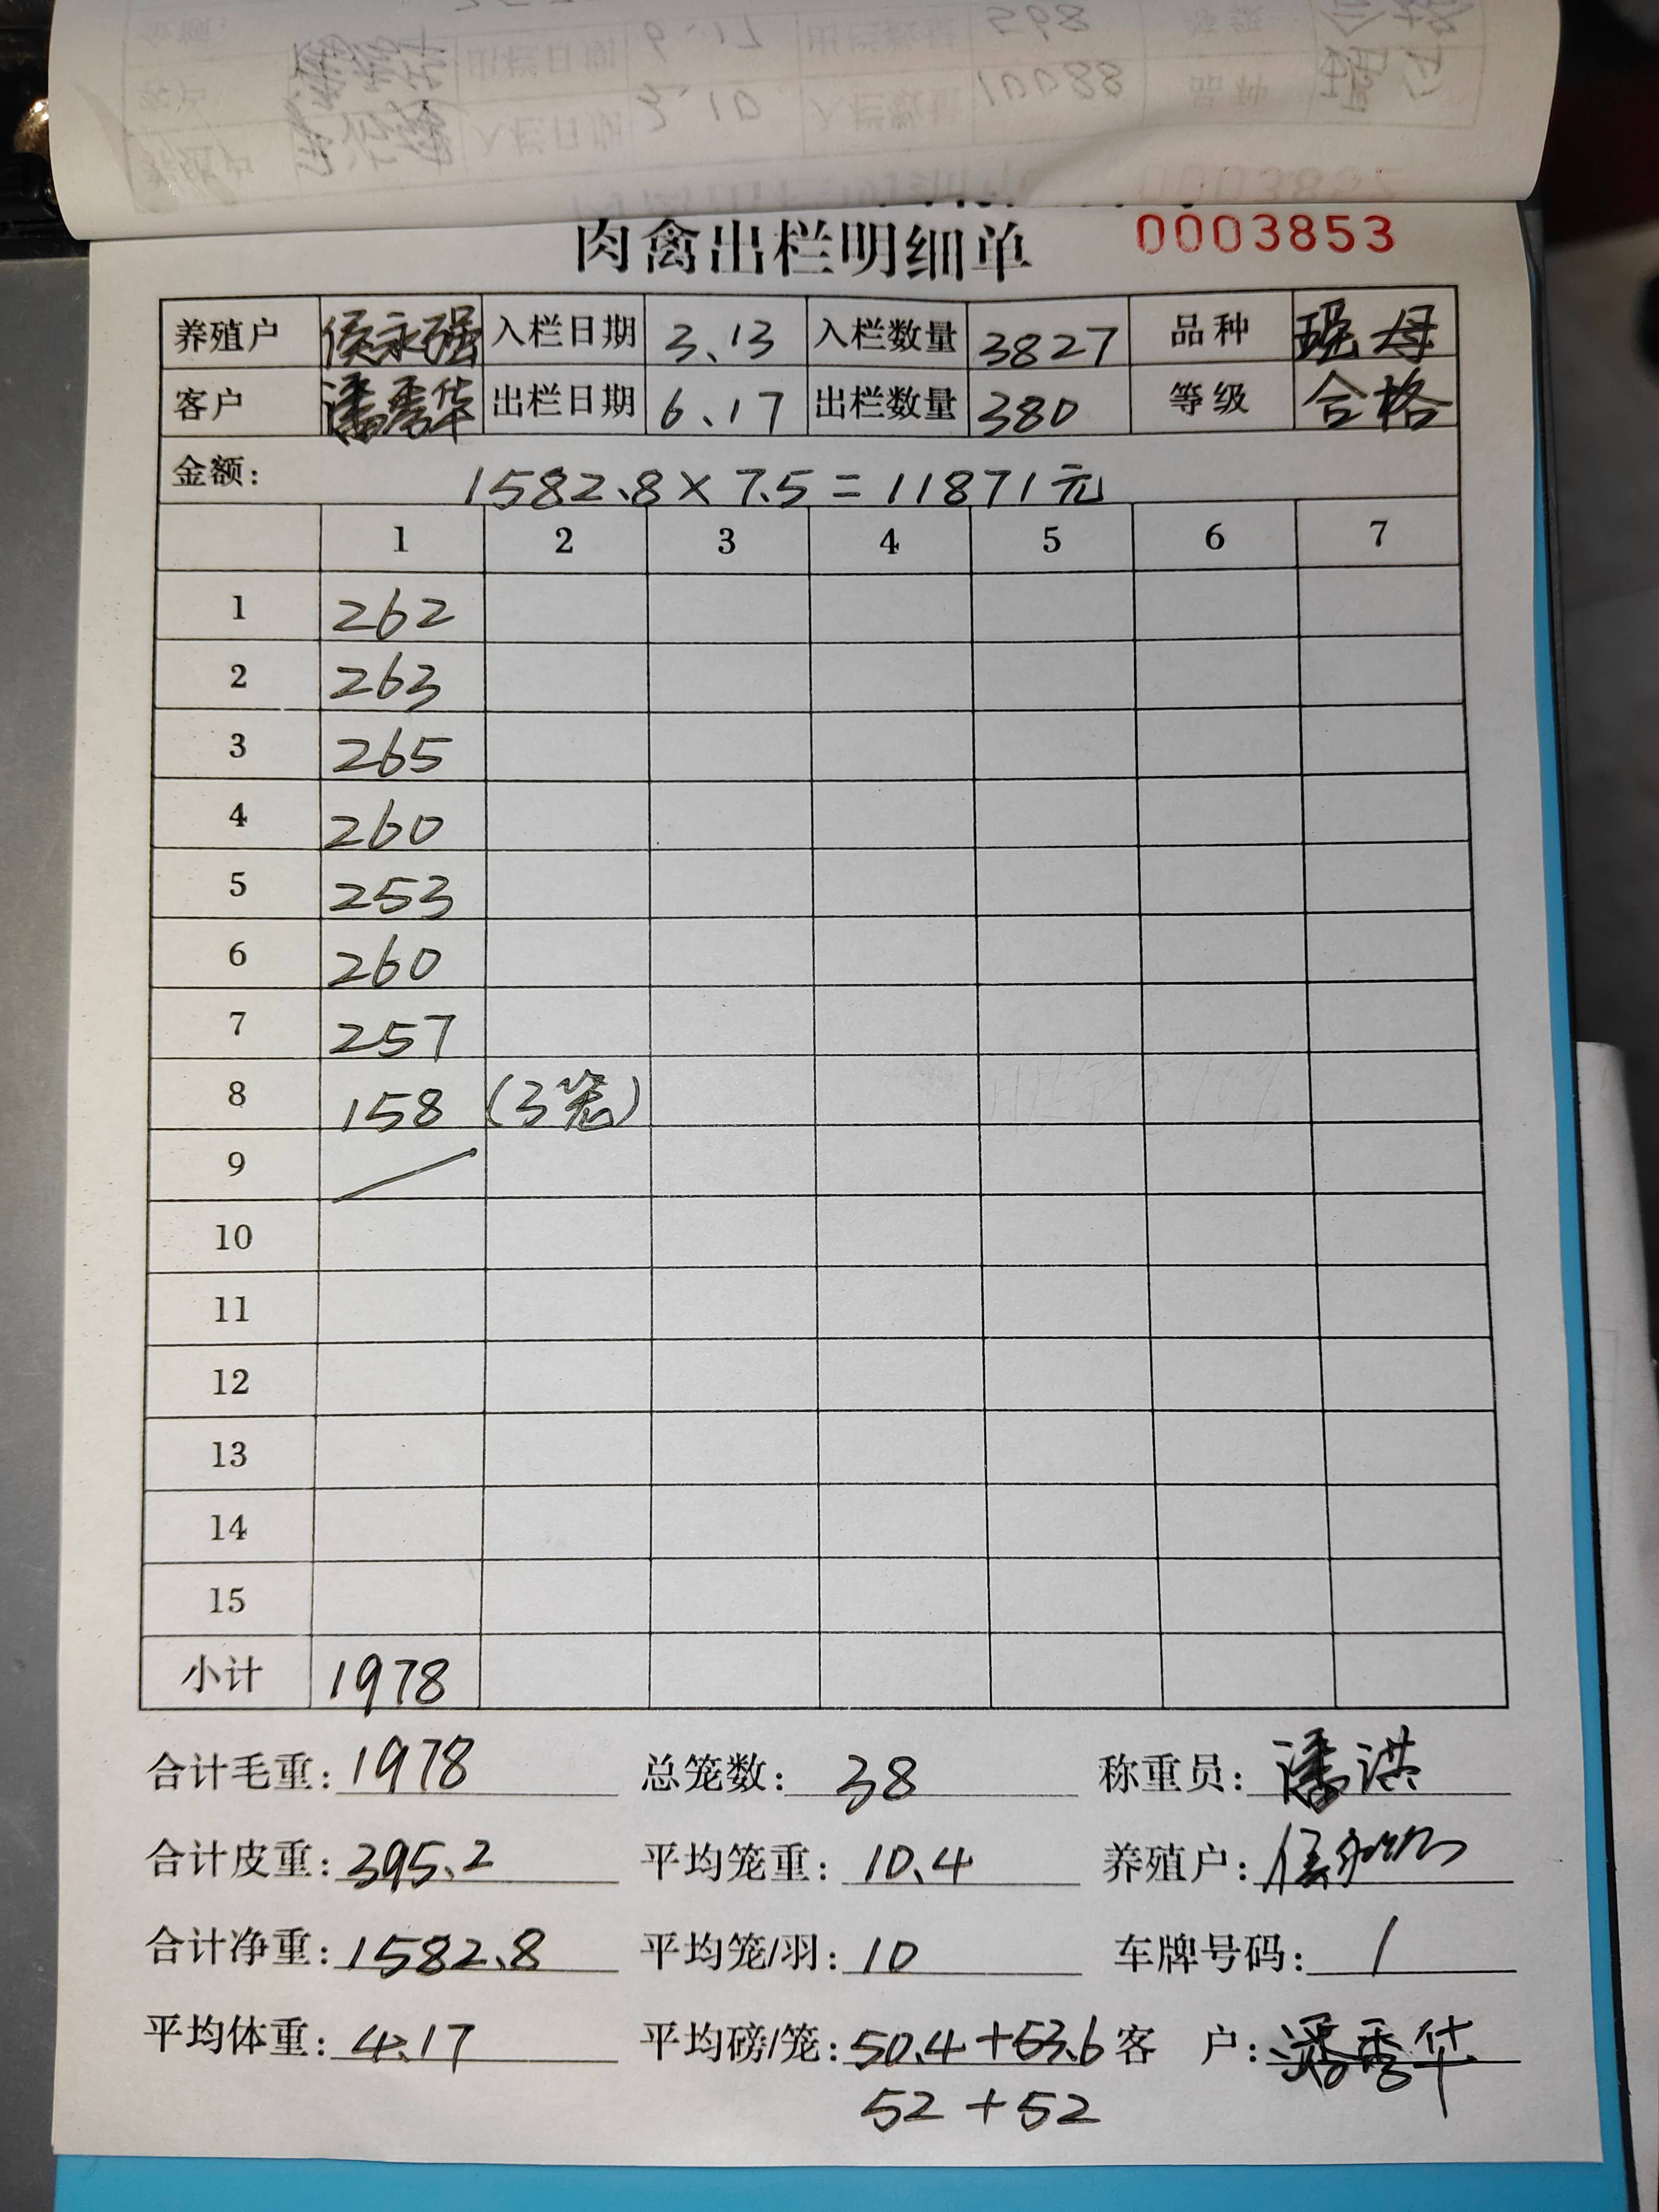 肉禽出栏明细单 0003853
养殖户 侯永强 入栏日期 3.13 入栏数量 3827 品种 瑶母
客户 潘秀华 出栏日期 6.17 出栏数量 380 等级 合格
金额: 1582.8×7.5=11871元
1 2 3 4 5 6 7
1 262
2 263
3 265
4 260
5 253
6 260
7 257
8 158 (3笼)
9
10
11
12
13
14
15
小计 1978
合计毛重: 1978 总笼数: 38 称重员: 潘洪
合计皮重: 395.2 平均笼重: 10.4 养殖户:
合计净重: 1582.8 平均笼/羽: 10 车牌号码: /
平均体重: 4.17 平均磅/笼: 50.4+53.6 客户: 潘秀华
52+52